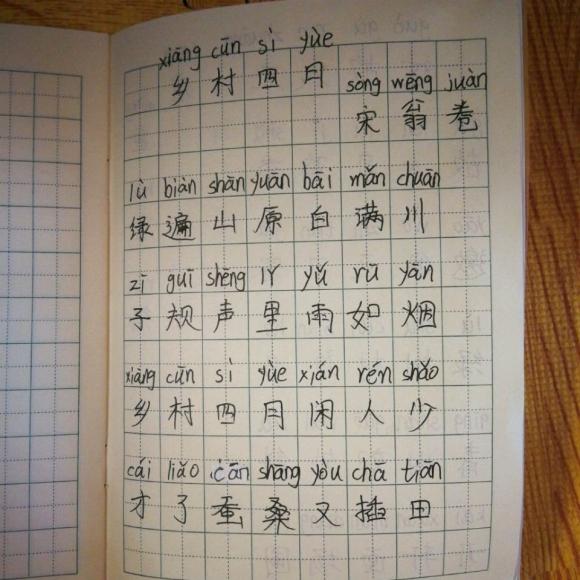 xiāng cūn sì yùe
乡村四月
sòng wēng juàn
宋翁卷
lǜ biàn shān yuān bāi mǎn chuān
绿遍山原白满川
zǐ guī shēng lǐ yǔ rū yān
子规声里雨如烟
xiāng cūn sì yùe xián rén shǎo
乡村四月闲人少
cái liǎo cān shāng yòu chā tiān
才了蚕桑又插田